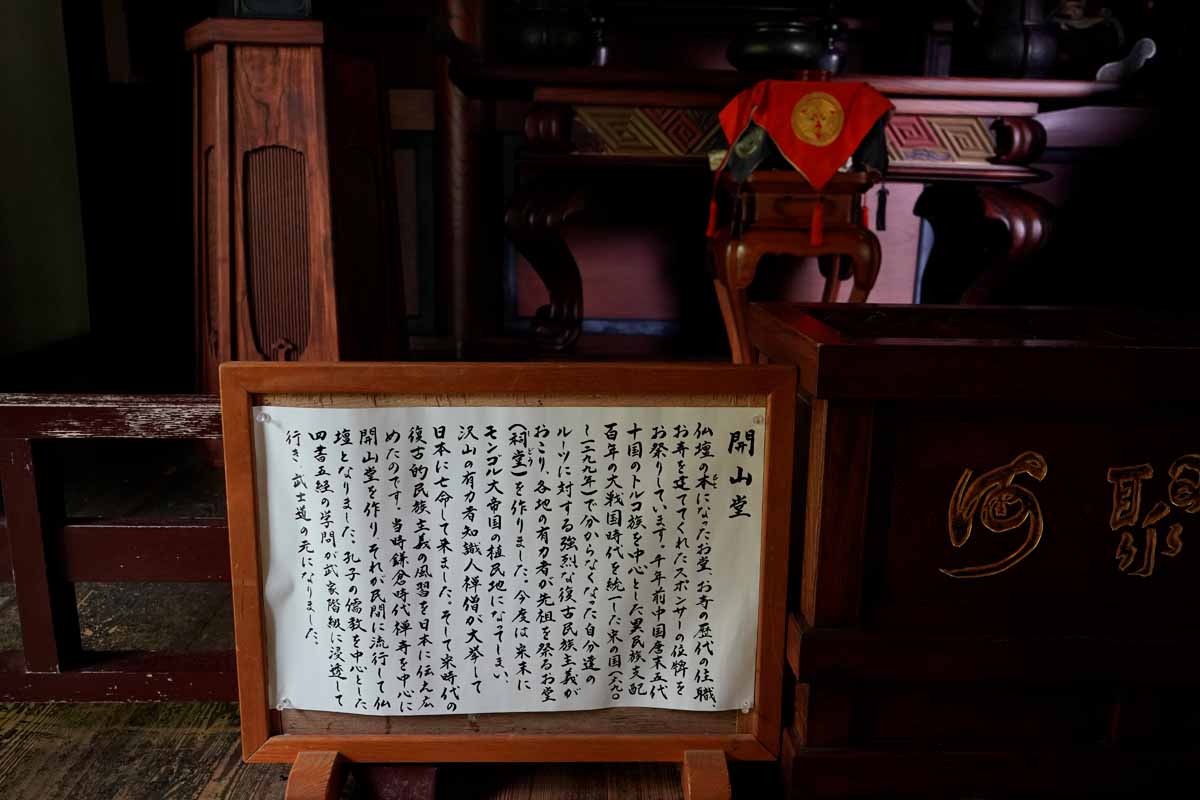 開山堂
仏壇の本になったお堂、お寺の歴代の住職、
お寺を建ててくれたスポンサーの位牌を
お祭りしています。千年前中国唐末五代
十国のトルコ族を中心とした異民族支配
百年の大戦国時代を統一した宋の国(九六〇
し一二七九年)で分からなくなった自分達の
ルーツに対する強烈な復古民族主義が
おこり、各地の有力者が先祖を祭るお堂
(祠堂)を作りました。今度は宋末に
モンゴル大帝国の植民地になってしまい、
沢山の有力者知識人禅僧が大挙して
日本に亡命して来ました。そして宋時代の
復古的民族主義の風習を日本に伝え広
めたのです。当時鎌倉時代禅寺を中心に
開山堂を作り、それが民間に流行して仏
壇となりました。孔子の儒教を中心とした
四書五経の学問が武家階級に浸透して
行き、武士道の元になりました。